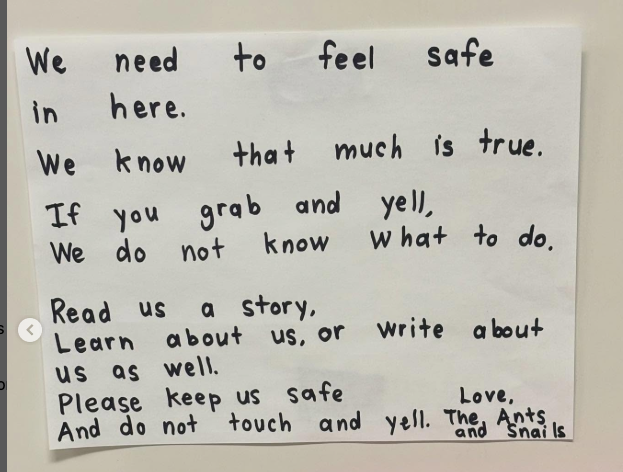 We need to feel safe
in here.
We know that much is true.
If you grab and yell,
We do not know what to do.
Read us a story,
Learn about us, or write about
us as well.
Please keep us safe
And do not touch and yell.
Love,
The Ants
and Snails